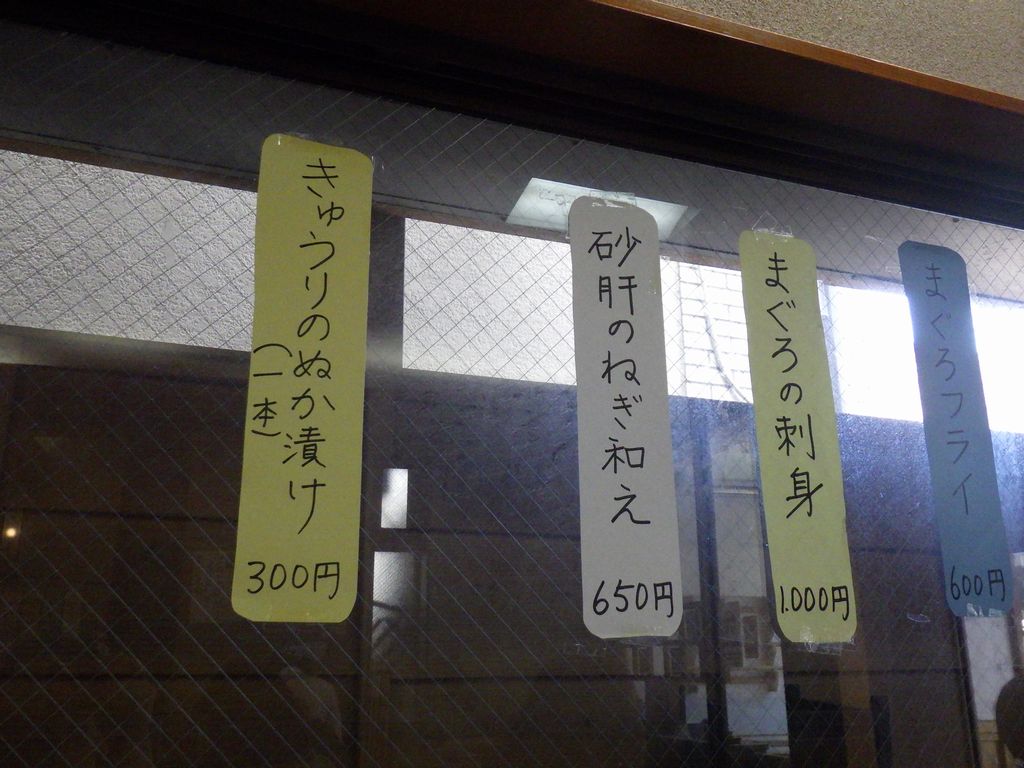 きゅうりのぬか漬け
(一本)
300円
砂肝のねぎ和え
650円
まぐろの刺身
1.000円
まぐろフライ
600円